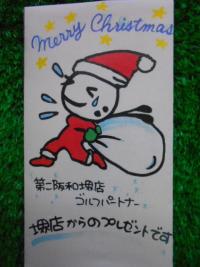 Merry Christmas
第二阪和堺店
ゴルフパートナー
堺店からのプレゼントです